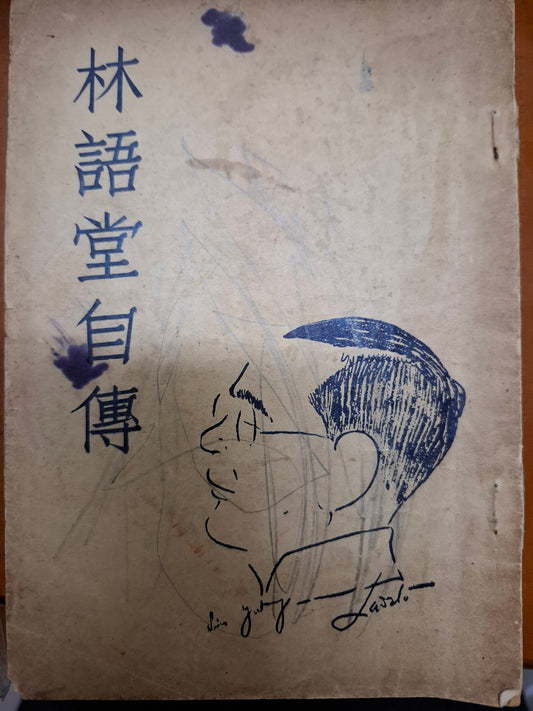 林語堂自傳
Lin Yutang